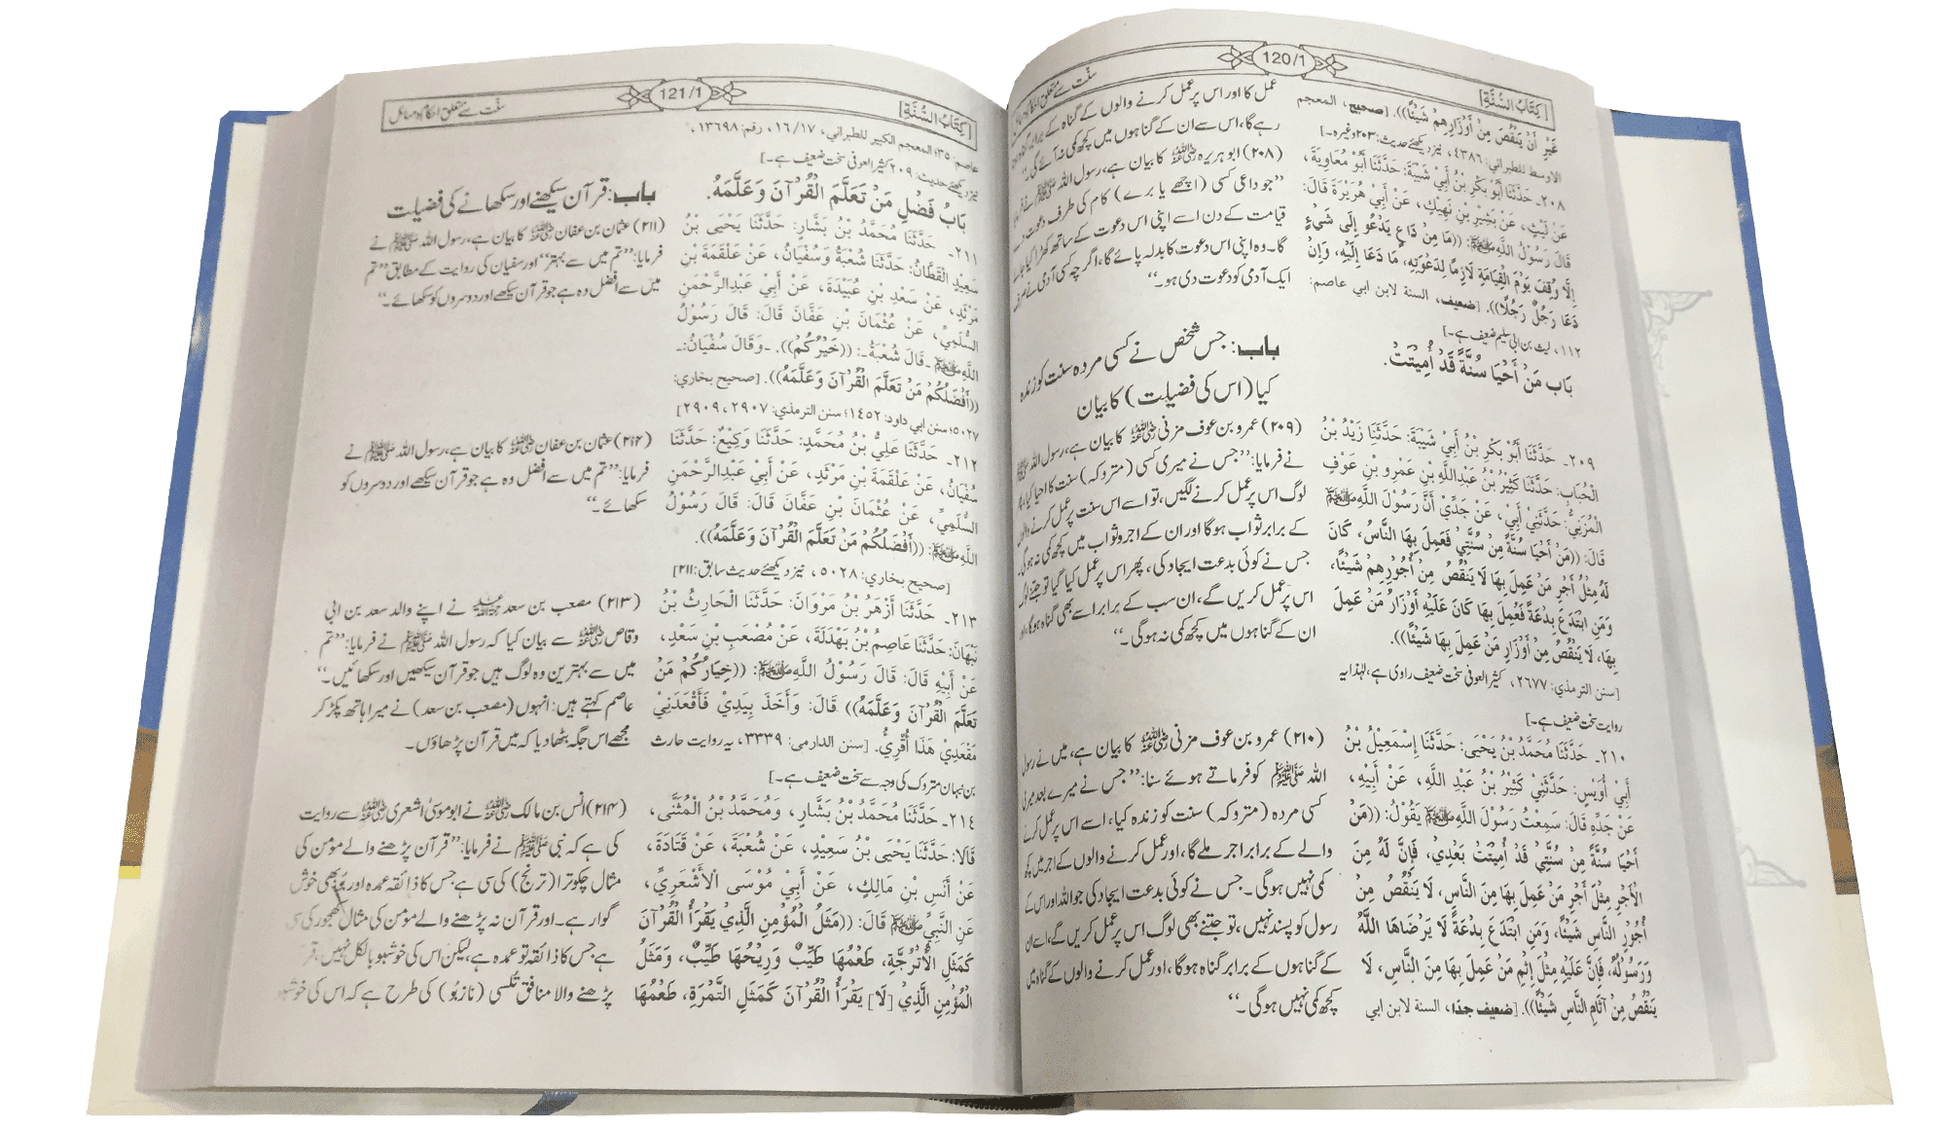 [كِتَابُ السُّنَّةِ]
120/1
سنت سے متعلق احکام و مسائل
غَيْرِ أَنْ يَنْقُصَ مِنْ أَوْزَارِهِمْ شَيْئًا)). [صحيح، المعجم
الاوسط للطبراني: ٤٣٨٦، نیز دیکھئے حدیث: ۲۰۳ وغیرہ۔]
٢٠٨۔ حَدَّثَنَا أَبُوْ بَكْرِ بْنُ أَبِيْ شَيْبَةَ: حَدَّثَنَا أَبُوْ مُعَاوِيَةَ،
عَنْ لَيْثٍ، عَنْ بَشِيْرِ بْنِ نَهِيْكٍ، عَنْ أَبِيْ هُرَيْرَةَ قَالَ:
قَالَ رَسُوْلُ اللَّهِ ﷺ: ((مَا مِنْ دَاعٍ يَدْعُو إِلَى شَيْءٍ
إِلَّا وُقِفَ يَوْمَ الْقِيَامَةِ لَازِمًا لِدَعْوَتِهِ، مَا دَعَا إِلَيْهِ، وَإِنْ
دَعَا رَجُلٌ رَجُلًا)). [ضعيف، السنة لابن ابي عاصم:
١١٢، لیث بن ابی سلیم ضعیف ہے۔]
بَابُ مَنْ أَحْيَا سُنَّةً قَدْ أُمِيْتَتْ.
٢٠٩۔ حَدَّثَنَا أَبُوْ بَكْرِ بْنُ أَبِيْ شَيْبَةَ: حَدَّثَنَا زَيْدُ بْنُ
الْحُبَابِ: حَدَّثَنَا كَثِيْرُ بْنُ عَبْدِاللَّهِ بْنِ عَمْرِو بْنِ عَوْفٍ
الْمُزَنِيُّ: حَدَّثَنِيْ أَبِيْ، عَنْ جَدِّيْ أَنَّ رَسُوْلَ اللَّهِ ﷺ
قَالَ: ((مَنْ أَحْيَا سُنَّةً مِنْ سُنَّتِيْ فَعَمِلَ بِهَا النَّاسُ، كَانَ
لَهُ مِثْلُ أَجْرِ مَنْ عَمِلَ بِهَا لَا يَنْقُصُ مِنْ أُجُوْرِهِمْ شَيْئًا،
وَمَنِ ابْتَدَعَ بِدْعَةً فَعُمِلَ بِهَا كَانَ عَلَيْهِ أَوْزَارُ مَنْ عَمِلَ
بِهَا، لَا يَنْقُصُ مِنْ أَوْزَارِ مَنْ عَمِلَ بِهَا شَيْئًا)).
[سنن الترمذي: ٢٦٧٧، کثیر العوفی سخت ضعیف راوی ہے، لہٰذا یہ
روایت سخت ضعیف ہے۔]
٢١٠۔ حَدَّثَنَا مُحَمَّدُ بْنُ يَحْيَى: حَدَّثَنَا إِسْمَعِيْلُ بْنُ
أَبِيْ أُوَيْسٍ: حَدَّثَنِيْ كَثِيْرُ بْنُ عَبْدِ اللَّهِ، عَنْ أَبِيْهِ،
عَنْ جَدِّهِ قَالَ: سَمِعْتُ رَسُوْلَ اللَّهِ ﷺ يَقُوْلُ: ((مَنْ
أَحْيَا سُنَّةً مِنْ سُنَّتِيْ قَدْ أُمِيْتَتْ بَعْدِيْ، فَإِنَّ لَهُ مِنَ
الْأَجْرِ مِثْلَ أَجْرِ مَنْ عَمِلَ بِهَا مِنَ النَّاسِ، لَا يَنْقُصُ مِنْ
أُجُوْرِ النَّاسِ شَيْئًا، وَمَنِ ابْتَدَعَ بِدْعَةً لَا يَرْضَاهَا اللَّهُ
وَرَسُوْلُهُ، فَإِنَّ عَلَيْهِ مِثْلَ إِثْمِ مَنْ عَمِلَ بِهَا مِنَ النَّاسِ، لَا
يَنْقُصُ مِنْ آثَامِ النَّاسِ شَيْئًا)). [ضعيف جدا، السنة لابن ابي
عمل کا اور اس پر عمل کرنے والوں کے گناہ کے برابر
رہے گا، اس سے ان کے گناہوں میں کچھ کمی نہ آئے گی۔“
(۲۰۸) ابو ہریرہ رضی اللہ عنہ کا بیان ہے، رسول اللہ ﷺ نے فرمایا
”جو داعی کسی (اچھے یا برے) کام کی طرف دعوت
قیامت کے دن اسے اپنی اس دعوت کے ساتھ کھڑا کیا جائے
گا۔ وہ اپنی اس دعوت کا بدلہ پائے گا، اگرچہ کسی آدمی نے صرف
ایک آدمی کو دعوت دی ہو۔“
باب: جس شخص نے کسی مردہ سنت کو زندہ
کیا (اس کی فضیلت) کا بیان
(۲۰۹) عمرو بن عوف مزنی رضی اللہ عنہ کا بیان ہے، رسول اللہ ﷺ
نے فرمایا: ”جس نے میری کسی (متروکہ) سنت کا احیا کیا،
لوگ اس پر عمل کرنے لگیں، تو اسے اس سنت پر عمل کرنے والوں
کے برابر ثواب ہوگا اور ان کے اجر و ثواب میں کچھ کمی نہ ہوگی۔
جس نے کوئی بدعت ایجاد کی، پھر اس پر عمل کیا گیا تو جتنے لوگ
اس پر عمل کریں گے، ان سب کے برابر اسے بھی گناہ ہوگا، اور
ان کے گناہوں میں کچھ کمی نہ ہوگی۔“
(۲۱۰) عمرو بن عوف مزنی رضی اللہ عنہ کا بیان ہے، میں نے رسول
اللہ ﷺ کو فرماتے ہوئے سنا: ”جس نے میرے بعد میری
کسی مردہ (متروکہ) سنت کو زندہ کیا، اسے اس پر عمل کرنے
والے کے برابر اجر ملے گا، اور عمل کرنے والوں کے اجر میں کچھ
کمی نہیں ہوگی۔ جس نے کوئی بدعت ایجاد کی جو اللہ اور اس کے
رسول کو پسند نہیں، تو جتنے بھی لوگ اس پر عمل کریں گے، اسے ان
کے گناہوں کے برابر گناہ ہوگا، اور عمل کرنے والوں کے گناہ میں
کچھ کمی نہیں ہوگی۔“
[كِتَابُ السُّنَّةِ]
121/1
سنت سے متعلق احکام و مسائل
عاصم: ٣٥؛ المعجم الكبير للطبراني، ١٦/١٧، رقم: ١٣٦٩٨،
نیز دیکھئے حدیث: ۲۰۹ کثیر العوفی سخت ضعیف ہے۔]
بَابُ فَضْلِ مَنْ تَعَلَّمَ الْقُرْآنَ وَعَلَّمَهُ.
٢١١۔ حَدَّثَنَا مُحَمَّدُ بْنُ بَشَّارٍ: حَدَّثَنَا يَحْيَى بْنُ
سَعِيْدٍ الْقَطَّانُ: حَدَّثَنَا شُعْبَةُ وَسُفْيَانُ، عَنْ عَلْقَمَةَ بْنِ
مَرْثَدٍ، عَنْ سَعْدِ بْنِ عُبَيْدَةَ، عَنْ أَبِيْ عَبْدِالرَّحْمَنِ
السُّلَمِيِّ، عَنْ عُثْمَانَ بْنِ عَفَّانَ قَالَ: قَالَ رَسُوْلُ
اللَّهِ ﷺ ۔قَالَ شُعْبَةُ۔: ((خَيْرُكُمْ)). ۔وَقَالَ سُفْيَانُ:۔
((أَفْضَلُكُمْ مَنْ تَعَلَّمَ الْقُرْآنَ وَعَلَّمَهُ)). [صحيح بخاري:
٥٠٢٧؛ سنن ابي داود: ١٤٥٢؛ سنن الترمذي: ٢٩٠٧، ٢٩٠٩]
٢١٢۔ حَدَّثَنَا عَلِيُّ بْنُ مُحَمَّدٍ: حَدَّثَنَا وَكِيْعٌ: حَدَّثَنَا
سُفْيَانُ، عَنْ عَلْقَمَةَ بْنِ مَرْثَدٍ، عَنْ أَبِيْ عَبْدِالرَّحْمَنِ
السُّلَمِيِّ، عَنْ عُثْمَانَ بْنِ عَفَّانَ قَالَ: قَالَ رَسُوْلُ
اللَّهِ ﷺ: ((أَفْضَلُكُمْ مَنْ تَعَلَّمَ الْقُرْآنَ وَعَلَّمَهُ)).
[صحيح بخاري: ٥٠٢٨، نیز دیکھئے حدیث سابق: ۲۱۱]
٢١٣۔ حَدَّثَنَا أَزْهَرُ بْنُ مَرْوَانَ: حَدَّثَنَا الْحَارِثُ بْنُ
نَبْهَانَ: حَدَّثَنَا عَاصِمُ بْنُ بَهْدَلَةَ، عَنْ مُصْعَبِ بْنِ سَعْدٍ،
عَنْ أَبِيْهِ قَالَ: قَالَ رَسُوْلُ اللَّهِ ﷺ: ((خِيَارُكُمْ مَنْ
تَعَلَّمَ الْقُرْآنَ وَعَلَّمَهُ)) قَالَ: وَأَخَذَ بِيَدِيْ فَأَقْعَدَنِيْ
مَقْعَدِيْ هَذَا أُقْرِئُ. [سنن الدارمی: ٣٣٣٩، یہ روایت حارث
بن نبہان متروک کی وجہ سے سخت ضعیف ہے۔]
٢١٤۔ حَدَّثَنَا مُحَمَّدُ بْنُ بَشَّارٍ، وَمُحَمَّدُ بْنُ الْمُثَنَّى،
قَالَا: حَدَّثَنَا يَحْيَى بْنُ سَعِيْدٍ، عَنْ شُعْبَةَ، عَنْ قَتَادَةَ،
عَنْ أَنَسِ بْنِ مَالِكٍ، عَنْ أَبِيْ مُوْسَى الْأَشْعَرِيِّ،
عَنِ النَّبِيِّ ﷺ قَالَ: ((مَثَلُ الْمُؤْمِنِ الَّذِيْ يَقْرَأُ الْقُرْآنَ
كَمَثَلِ الْأُتْرُجَّةِ، طَعْمُهَا طَيِّبٌ وَرِيْحُهَا طَيِّبٌ، وَمَثَلُ
الْمُؤْمِنِ الَّذِيْ [لَا] يَقْرَأُ الْقُرْآنَ كَمَثَلِ التَّمْرَةِ، طَعْمُهَا
باب: قرآن سیکھنے اور سکھانے کی فضیلت
(۲۱۱) عثمان بن عفان رضی اللہ عنہ کا بیان ہے، رسول اللہ ﷺ نے
فرمایا: ”تم میں سے بہتر“ اور سفیان کی روایت کے مطابق ”تم
میں سے افضل وہ ہے جو قرآن سیکھے اور دوسروں کو سکھائے۔“
(۲۱۲) عثمان بن عفان رضی اللہ عنہ کا بیان ہے، رسول اللہ ﷺ نے
فرمایا: ”تم میں سے افضل وہ ہے جو قرآن سیکھے اور دوسروں کو
سکھائے۔“
(۲۱۳) مصعب بن سعد رحمہ اللہ نے اپنے والد سعد بن ابی
وقاص رضی اللہ عنہ سے بیان کیا کہ رسول اللہ ﷺ نے فرمایا: ”تم
میں سے بہترین وہ لوگ ہیں جو قرآن سیکھیں اور سکھائیں۔“
عاصم کہتے ہیں: انہوں (مصعب بن سعد) نے میرا ہاتھ پکڑ کر
مجھے اس جگہ بٹھا دیا کہ میں قرآن پڑھاؤں۔
(۲۱۴) انس بن مالک رضی اللہ عنہ نے ابو موسیٰ اشعری رضی اللہ عنہ سے روایت
کی ہے کہ نبی ﷺ نے فرمایا: ”قرآن پڑھنے والے مومن کی
مثال چکوترا (ترنج) کی سی ہے جس کا ذائقہ عمدہ اور بو بھی خوش
گوار ہے۔ اور قرآن نہ پڑھنے والے مومن کی مثال کھجور کی سی
ہے جس کا ذائقہ تو عمدہ ہے، لیکن اس کی خوشبو بالکل نہیں،
پڑھنے والا منافق تلسی (نازبو) کی طرح ہے کہ اس کی خوشبو